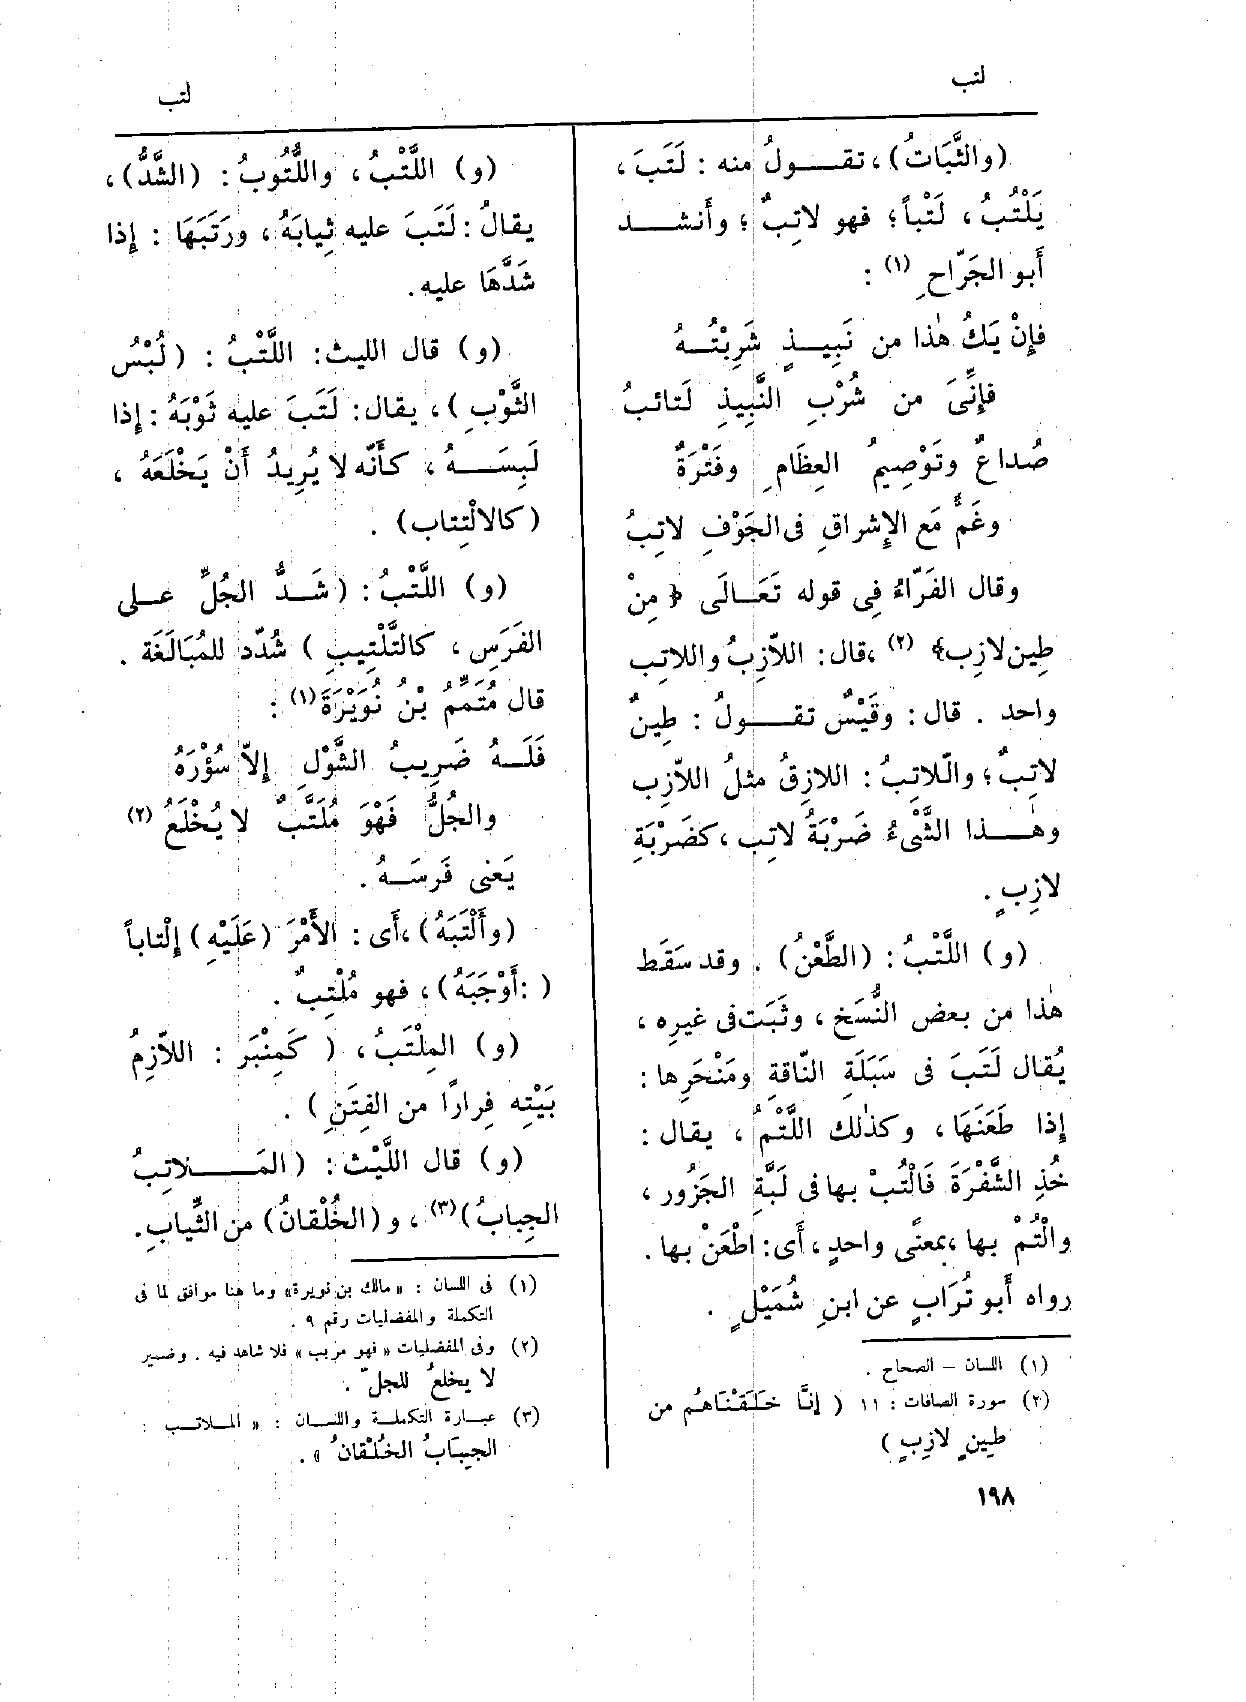 لتب
لتب
(والثَّبَاتُ)، تقـــولُ منه : لَتَبَ ،
يَلْتُبُ ، لَتْباً ؛ فهو لاتِبٌ ؛ وأنشـــد
أَبو الجَرّاحِ (١) :
فإِنْ يَكُ هٰذا من نَبِيـــذٍ شَرِبْتُـــهُ
فإِنِّىَ من شُرْبِ النَّبِيذِ لَتائبُ
صُداعٌ وتَوْصِيمُ العِظَامِ وفَتْرَةٌ
وغَمٌّ مَع الإِشراقِ فى الجَوْفِ لاتِبُ
وقال الفَرّاءُ فِى قوله تَعَـــالَى ﴿ مِنْ
طِين لازِب﴾ (٢) ،قال : اللاّزِبُ واللاتِب
واحد . قال : وقَيْسٌ تقـــولُ : طِينٌ
لاتِبٌ ؛ والّلاتِبُ : اللازِقُ مثلُ اللاّزِب
وهٰـــذا الشَّىْءُ ضَرْبَةُ لاتِب ، كضَرْبَةِ
لازِبٍ .
(و) اللَّتْبُ : (الطَّعْنُ) . وقد سَقَط
هٰذا من بعض النُّسَخ ، وثَبَت فى غيرِه ،
يُقال لَتَبَ فى سَبَلَةِ النّاقةِ ومَنْحَرِها :
إِذا طَعَنَهَا ، وكذٰلك اللَّتْمُ ، يقال :
خُذِ الشَّفْرَةَ فَالْتُبْ بها فى لَبَّةِ الجَزُور ،
والْتُمْ بها ،بمعنًى واحدٍ ، أَى : اطْعَنْ بها .
رواه أَبو تُرَابٍ عن ابنِ شُمَيْلٍ .
(١) اللسان – الصحاح .
(٢) سورة الصافات : ١١ ( إنَّا خَلَقْنَاهُم من
طِينٍ لازِبٍ )
١٩٨
(و) اللَّتْبُ ، واللُّتُوبُ : (الشَّدُّ) ،
يقالُ : لَتَبَ عليه ثِيابَهُ ، ورَتَبَهَا : إِذا
شَدَّهَا عليه .
(و) قال الليث : اللَّتْبُ : (لُبْسُ
الثَّوْبِ )، يقال : لَتَبَ عليه ثَوْبَهُ : إِذا
لَبِسَـــهُ ، كأَنّه لا يُرِيدُ أَنْ يَخْلَعَهُ ،
(كالالْتِتاب) .
(و) اللَّتْبُ : (شَـــدُّ الجُلِّ عـــلى
الفَرَسِ ، كالتَّلْتِيبِ ) شُدّد للمُبَالَغَة .
قال مُتَمِّمُ بْنُ نُوَيْرَةَ (١) :
فَلَـــهُ ضَرِيبُ الشَّوْلِ إِلاّ سُؤْرَهُ
والجُلُّ فَهْوَ مُلَتَّبٌ لا يُخْلَعُ (٢)
يَعنى فَرسَـــهُ .
(وأَلْتَبَهُ) ،أَى : الأَمْرَ (عَلَيْهِ ) إِلْتاباً
( :أَوْجَبَهُ) ، فهو مُلْتِبٌ .
(و) المِلْتَبُ ، ( كَمِنْبَر : اللاّزِمُ
بَيْتِه فِرارًا من الفِتَنِ ) .
(و) قال اللَّيْث : (المَـــلاتِبُ
الجِبابُ ) (٣) ، و (الخُلْقانُ ) من الثِّيابِ .
(١) فى اللسان : « مالك بن نويرة» وما هنا موافق لما فى
التكملة والمفضليات رقم ٩ .
(٢) وفى المفضليات « فهو مربب » فلا شاهد فيه . وضمير
لا يخلعُ للجلّ .
(٣) عبـــارة التكملـــة واللســـان : « المـــلاتـــب :
الجِبَابُ الخُلْقَانُ » .